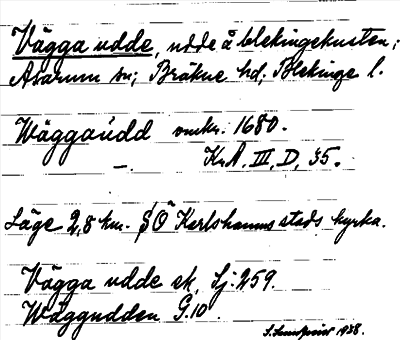 Vägga udde, udde å blekingekusten;
Asarum sn; Bräkne hd; Blekinge l.
Wäggaudd omkr. 1680.
— Kr.A. III, D, 35.
Läge 2,8 km. SÖ Karlshamns stads kyrka.
Vägga udde sk. Sj. 259.
Wäggudden G.10.
1938.